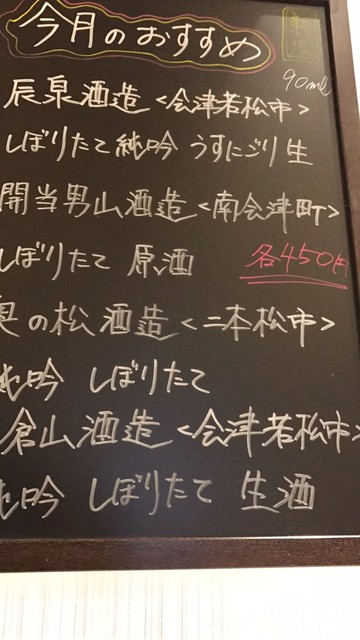 今月のおすすめ
90ml
辰泉酒造<会津若松市>
しぼりたて純吟 うすにごり生
開当男山酒造<南会津町>
しぼりたて 原酒
各450円
奥の松酒造<二本松市>
純吟 しぼりたて
倉山酒造<会津若松市>
純吟 しぼりたて 生酒